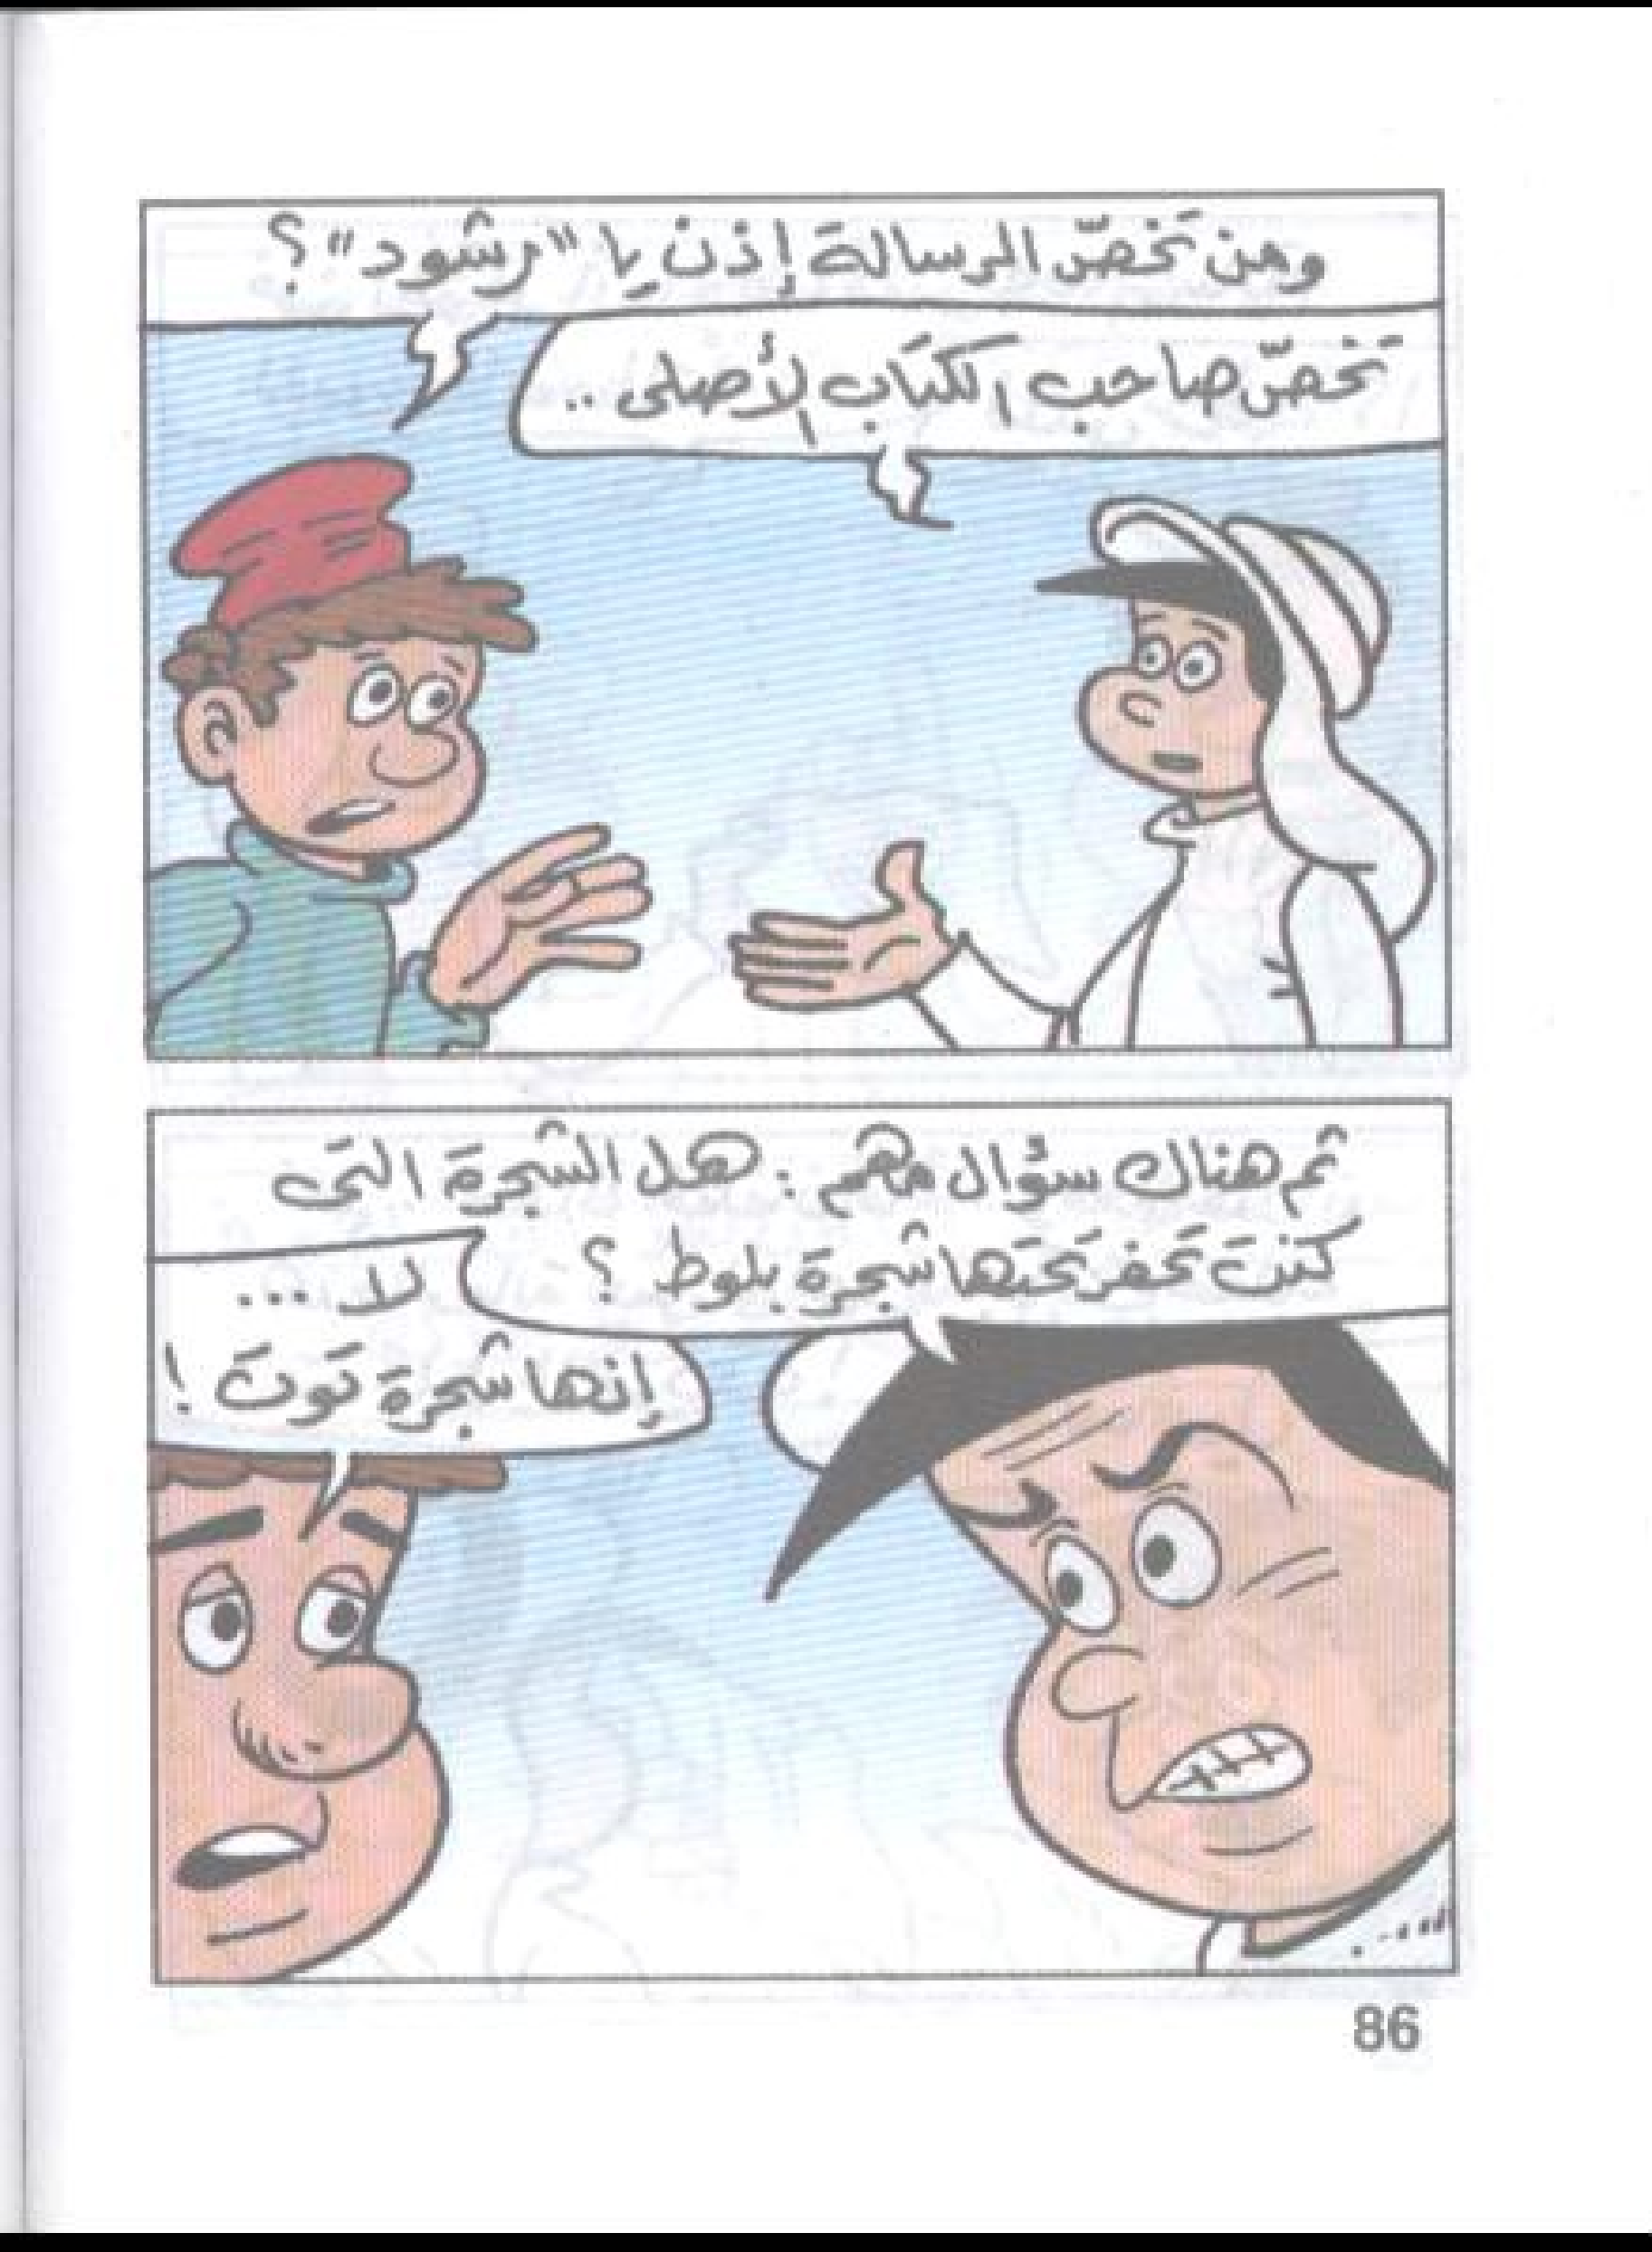 ومن تخصّ الرسالة إذن يا "رشود"؟
تخصّ صاحب الكتاب الأصلى ..
ثم هناك سؤال مهم : هل الشجرة التى
كنت تحفر تحتها شجرة بلوط ؟
لا ...
إنها شجرة توت !
86